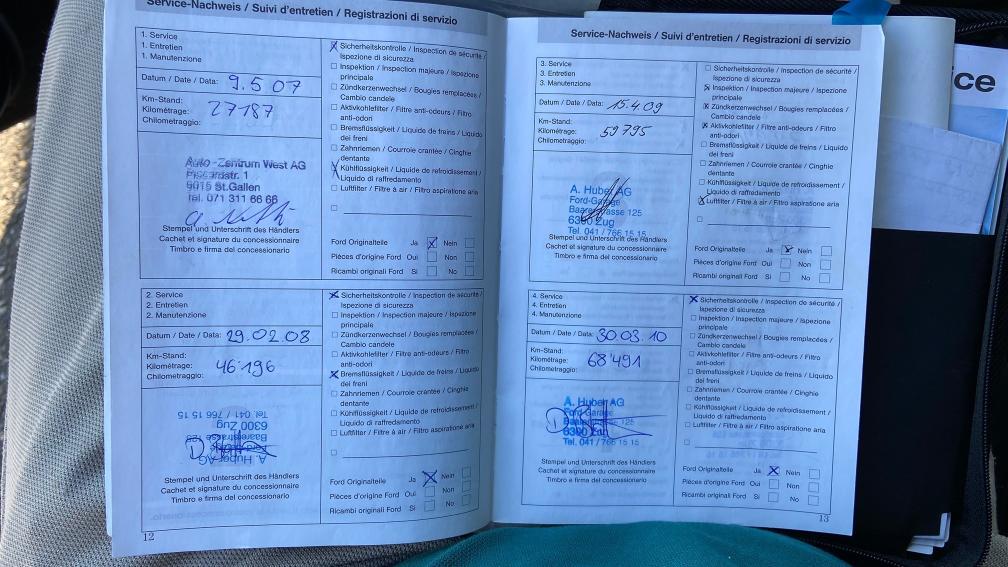 Service-Nachweis / Suivi d'entretien / Registrazioni di servizio
1. Service
1. Entretien
1. Manutenzione
Datum / Date / Data: 9.5.07
Km-Stand:
Kilométrage: 27187
Chilometraggio:
Auto-Zentrum West AG
9015 St.Gallen
tel. 071 311 66 66
Stempel und Unterschrift des Händlers
Cachet et signature du concessionnaire
Timbro e firma del concessionario
Sicherheitskontrolle / Inspection de sécurité /
Ispezione di sicurezza
Inspektion / Inspection majeure / Ispezione
principale
Zündkerzenwechsel / Bougies remplacées /
Cambio candele
Aktivkohlefilter / Filtre anti-odeurs / Filtro
anti-odori
Bremsflüssigkeit / Liquide de freins / Liquido
dei freni
Zahnriemen / Courroie crantée / Cinghie
dentante
Kühlflüssigkeit / Liquide de refroidissement /
Liquido di raffredamento
Luftfilter / Filtre à air / Filtro aspiratione aria
Ford Originalteile Ja X Nein
Pièces d'origine Ford Oui Non
Ricambi originali Ford Si No
2. Service
2. Entretien
2. Manutenzione
Datum / Date / Data: 29.02.08
Km-Stand:
Kilométrage: 46'196
Chilometraggio:
A. Huber AG
Ford-Garage
Baarerstrasse 125
6300 Zug
Tel. 041 / 766 15 15
Stempel und Unterschrift des Händlers
Cachet et signature du concessionnaire
Timbro e firma del concessionario
Sicherheitskontrolle / Inspection de sécurité /
Ispezione di sicurezza
Inspektion / Inspection majeure / Ispezione
principale
Zündkerzenwechsel / Bougies remplacées /
Cambio candele
Aktivkohlefilter / Filtre anti-odeurs / Filtro
anti-odori
Bremsflüssigkeit / Liquide de freins / Liquido
dei freni
Zahnriemen / Courroie crantée / Cinghie
dentante
Kühlflüssigkeit / Liquide de refroidissement /
Liquido di raffredamento
Luftfilter / Filtre à air / Filtro aspiratione aria
Ford Originalteile Ja X Nein
Pièces d'origine Ford Oui Non
Ricambi originali Ford Si No
12
Service-Nachweis / Suivi d'entretien / Registrazioni di servizio
3. Service
3. Entretien
3. Manutenzione
Datum / Date / Data: 15.4.09
Km-Stand:
Kilométrage: 59'795
Chilometraggio:
A. Huber AG
Ford-Garage
Baarerstrasse 125
6300 Zug
Tel. 041 / 766 15 15
Stempel und Unterschrift des Händlers
Cachet et signature du concessionnaire
Timbro e firma del concessionario
Sicherheitskontrolle / Inspection de sécurité /
Ispezione di sicurezza
Inspektion / Inspection majeure / Ispezione
principale
Zündkerzenwechsel / Bougies remplacées /
Cambio candele
Aktivkohlefilter / Filtre anti-odeurs / Filtro
anti-odori
Bremsflüssigkeit / Liquide de freins / Liquido
dei freni
Zahnriemen / Courroie crantée / Cinghie
dentante
Kühlflüssigkeit / Liquide de refroidissement /
Liquido di raffredamento
Luftfilter / Filtre à air / Filtro aspiratione aria
Ford Originalteile Ja X Nein
Pièces d'origine Ford Oui Non
Ricambi originali Ford Si No
4. Service
4. Entretien
4. Manutenzione
Datum / Date / Data: 30.03.10
Km-Stand:
Kilométrage: 68'491
Chilometraggio:
A. Huber AG
Ford-Garage
Baarerstrasse 125
6300 Zug
Tel. 041 / 766 15 15
Stempel und Unterschrift des Händlers
Cachet et signature du concessionnaire
Timbro e firma del concessionario
Sicherheitskontrolle / Inspection de sécurité /
Ispezione di sicurezza
Inspektion / Inspection majeure / Ispezione
principale
Zündkerzenwechsel / Bougies remplacées /
Cambio candele
Aktivkohlefilter / Filtre anti-odeurs / Filtro
anti-odori
Bremsflüssigkeit / Liquide de freins / Liquido
dei freni
Zahnriemen / Courroie crantée / Cinghie
dentante
Kühlflüssigkeit / Liquide de refroidissement /
Liquido di raffredamento
Luftfilter / Filtre à air / Filtro aspiratione aria
Ford Originalteile Ja X Nein
Pièces d'origine Ford Oui Non
Ricambi originali Ford Si No
13
ce